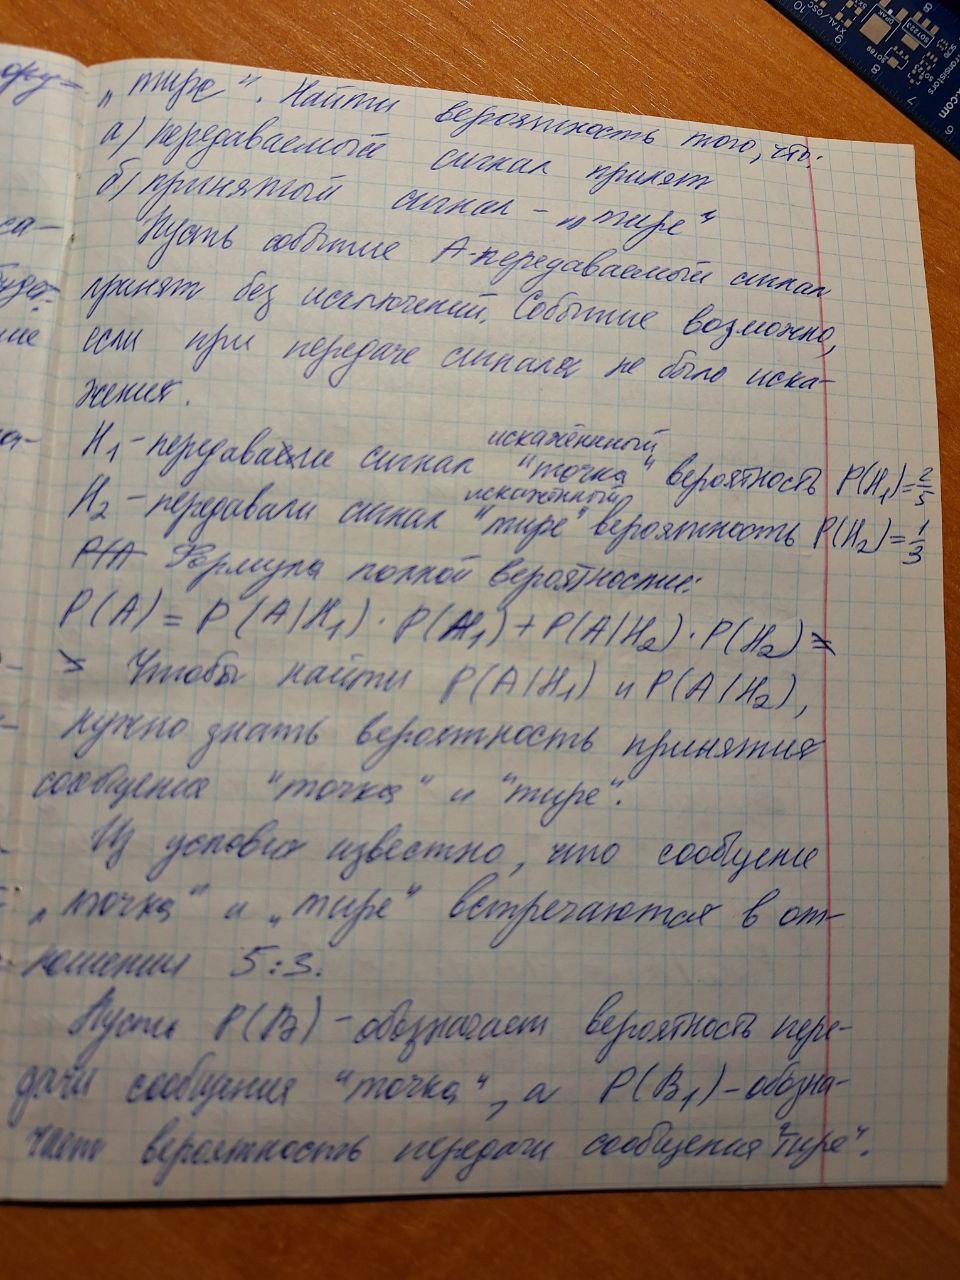 „тире". Найти вероятность того, что:
а) передаваемый сигнал принят
б) принятый сигнал - „тире"
Пусть событие А-передаваемый сигнал
принят без исключений. Событие возможно,
если при передаче сигнала не было иска-
жения.
искажённый
H1 - передавали сигнал "точка" вероятность P(H1)=2/5
искажённый
H2 - передавали сигнал "тире" вероятность P(H2)=1/3
P(A Формула полной вероятностие:
P(A) = P(A|H1) · P(H1) + P(A|H2) · P(H2) =
Чтобы найти P(A|H1) и P(A|H2),
нужно знать вероятность принятия
сообщения "точка" и "тире".
Из условия известно, что сообщение
„точка" и „тире" встречаются в от-
ношении 5:3.
Пусть P(B) - обозначает вероятность пере-
дачи сообщения "точка", а P(B1) - обозна-
чает вероятность передачи сообщения "тире".
ору-
са-
ие
XTAL/OSC
DPAK
SOT223
SOT89
10
9
8
7
6